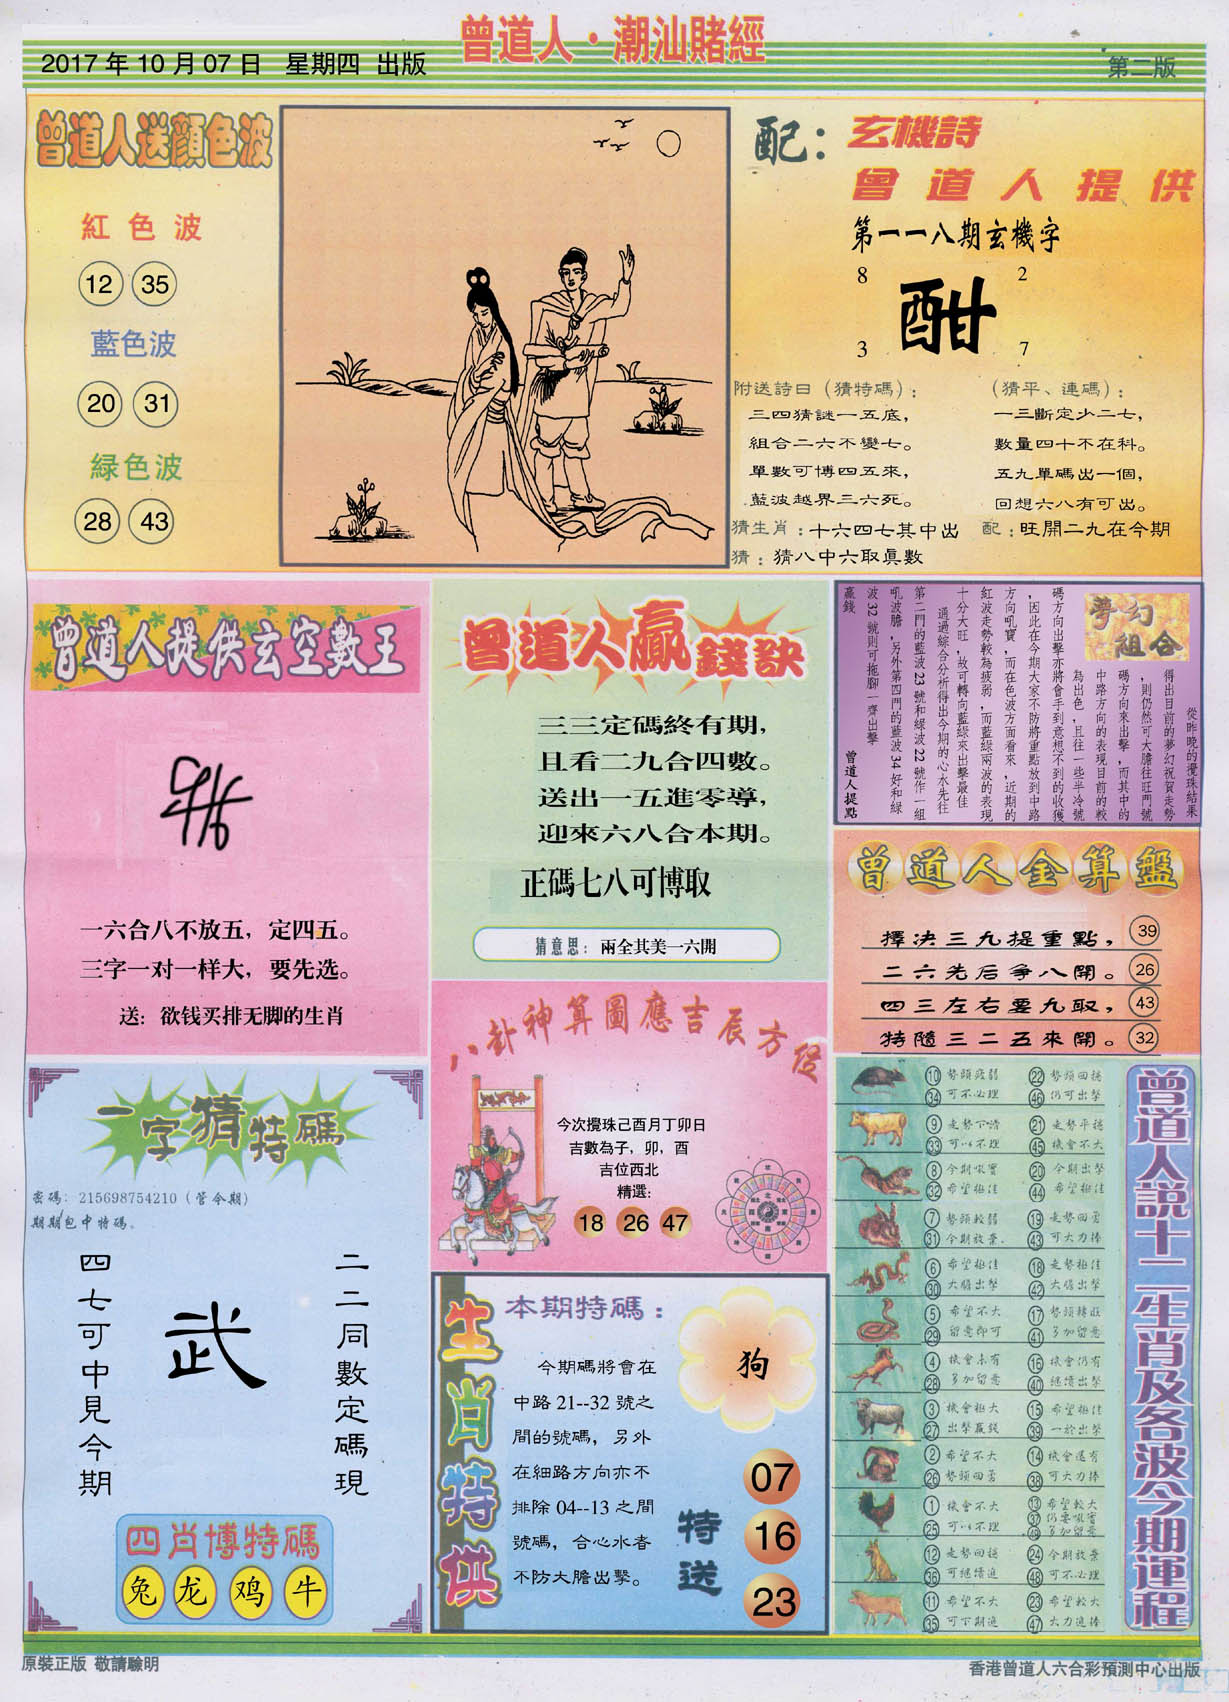 曾道人·潮汕賭經
2017年10月07日 星期四 出版
第二版
曾道人送顏色波
紅色波
12 35
藍色波
20 31
緑色波
28 43
配：玄機詩
曾道人提供
第一一八期玄機字
8 2
酣
3 7
附送詩曰（猜特碼）：
三四猜謎一五底，
組合二六不變七。
單數可博四五來，
藍波越界三六死。
（猜平、連碼）：
一三斷定少二七，
數量四十不在科。
五九單碼出一個，
回想六八有可出。
猜生肖：十六四七其中出
配：旺開二九在今期
猜：猜八中六取真數
曾道人提供玄空數王
一六合八不放五，定四五。
三字一对一样大，要先选。
送：欲钱买排无脚的生肖
曾道人贏錢訣
三三定碼終有期，
且看二九合四數。
送出一五進零導，
迎來六八合本期。
正碼七八可博取
猜意思：兩全其美一六開
夢幻組合
從昨晚的攪珠結果
得出目前的夢幻祝賀走勢
，則仍然可大膽往旺門號
碼方向來出擊，而其中的
中路方向的表現目前的較
為出色，且往一些半冷號
碼方向出擊亦將會手到意想不到的收獲
，因此在今期大家不防將重點放到中路
方向吼寶，而在色波方面看來，近期的
紅波走勢較為疲弱，而藍綠兩波的表現
十分大旺，故可轉向藍綠來出擊最佳
通過綜合分析得出今期的心水先往
第二門的藍波23號和緑波22號作一組
吼波膽，另外第四門的藍波34好和緑
波32號則可拖腳一齊出擊
贏錢
曾道人提點
曾道人金算盤
擇决三九提重點， 39
二六先后争八開。 26
四三左右要九取， 43
特隨三二五來開。 32
八卦神算圖應吉辰方位
今次攪珠己酉月丁卯日
吉數為子，卯，酉
吉位西北
精選：
18 26 47
一字猜特碼
密碼：215698754210（管今期）
期期包中特碼。
二二同數定碼現
武
四七可中見今期
四肖博特碼
兔 龙 鸡 牛
生肖特供
本期特碼：
狗
今期碼將會在
中路21--32號之
間的號碼，另外
在細路方向亦不
排除04--13之間
號碼，合心水者
不防大膽出擊。
特送
07
16
23
曾道人説十二生肖及各波今期運程
10 勢頭疲弱 22 勢頭回穩
34 可不必理 46 仍可出擊
9 走勢下滑 21 走勢平穩
33 可以不理 45 機會不大
8 今期吼寶 20 今期出擊
32 希望極佳 44 希望極佳
7 勢頭較弱 19 走勢回勇
31 今期放棄 43 可大力捧
6 希望極佳 18 走勢極佳
30 大膽出擊 42 大膽出擊
5 希望不大 17 勢頭轉旺
29 留意即可 41 多加留意
4 機會未有 16 機會仍有
28 多加留意 40 繼續出擊
3 機會極大 15 希望極佳
27 出擊贏錢 39 一於出擊
2 希望不大 14 機會還有
26 勢頭回勇 38 可大力捧
1 機會不大 13 希望較大
25 可以不理 37 仍要吼寶
49 多加留意
12 走勢回穩 24 今期放棄
36 可繼續追 48 可不必理
11 希望不大 23 希望較大
35 可下期追 47 大力追捧
原裝正版 敬請驗明
香港曾道人六合彩預測中心出版